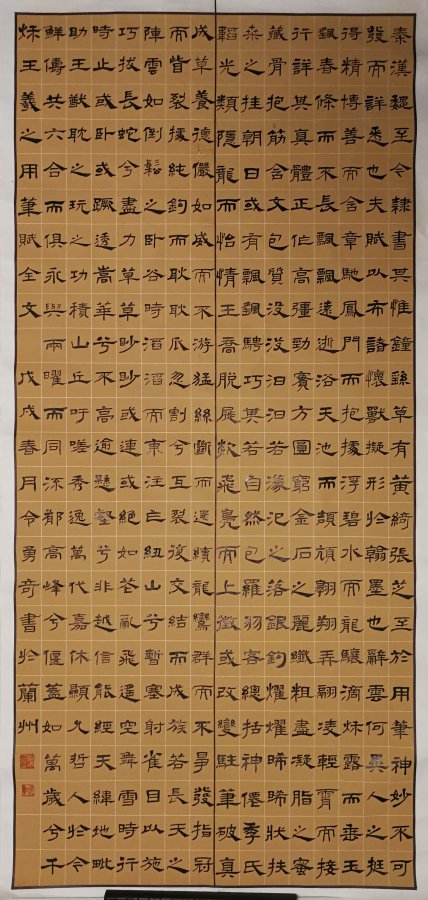 秦漢魏至今隸書其惟鐘繇草有黃綺張芝至於用筆神妙不可
發而詳悉也夫賦以布諸懷獸擬形於翰墨也辭雲何異人之挺
得精博善而含章馳鳳門而抱據浮碧水而龍驤滴秌露而垂玉
飆春條而不長飄飄遠逝浴天池而頡頏翱翔弄翮凌輕霄而接
行詳其真體正作高彊勁實方圓窮金石之麗纖粗盡凝脂之蜜
藏骨抱筋含文包質沒沒汩汩若濛汜之落銀鉤燿燿晞晞狀扶
桑之挂朝日或有飄飖騁巧其若自然包羅羽客總括神僊季氏
韜光類隱龍而怡情王喬脫屣欻飛鳧而上徵或改變駐筆破真
成草養德儼如威而不游猛絲斷而還續龍鸞群而不爭發指冠
而眥裂據純鉤而耿耿瓜忽割兮互裂復交結而成簇若長天之
陣雲如倒鬆之臥谷時滔滔而東注乍紐山兮暫塞射雀目以施
巧拔長蛇兮盡力草草眇眇或連或絕如花亂飛遙空舞雪時行
時止或臥或蹶透嵩華兮不高逾懸壑兮非越信能經天緯地毗
助王猷耽之玩之功積山丘吁嗟秀逸萬代嘉休顯允哲人於今
鮮儔共六合而俱永與兩曜而同流鬱高峰兮偃蓋如萬歲兮千
秌王羲之用筆賦全文 戊戌春月令勇奇書於蘭州